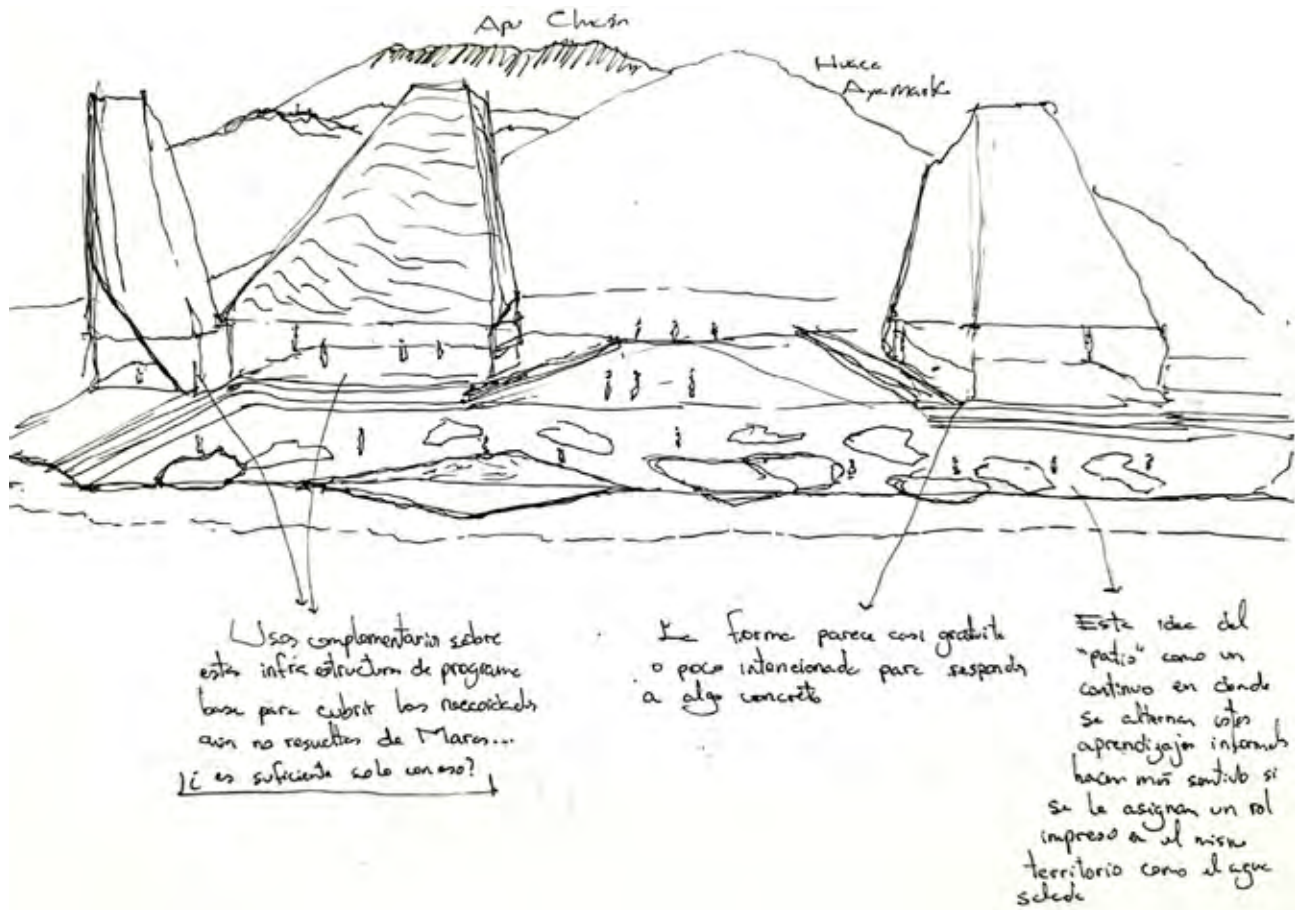 Apu Chicón
Huaca
Ayamarka
Usos complementarios sobre
estas infraestructura de programa
base para cubrir las necesidades
aún no resueltas de Maras...
¿ es suficiente solo con eso?
La forma parece casi gratuita
o poco intencionada para responder
a algo concreto
Esta idea del
"patio" como un
continuo en donde
se alternan estos
aprendizajes informales
hacen más sentido si
se le asignan un rol
impreso en el mismo
territorio como el agua
salada